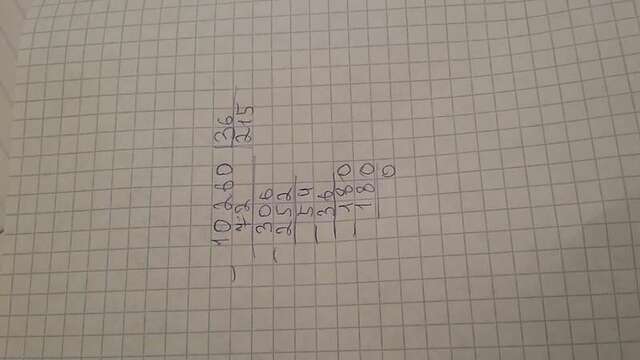 10260 |36
- 72 215
306
- 252
54
- 36
180
- 180
0